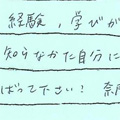 経験,学びが
知らなかた自分に
ばって下さい! 奈